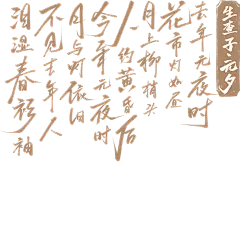 生查子·元夕
去年元夜时
花市灯如昼
月上柳梢头
人约黄昏后
今年元夜时
月与灯依旧
不见去年人
泪湿春衫袖